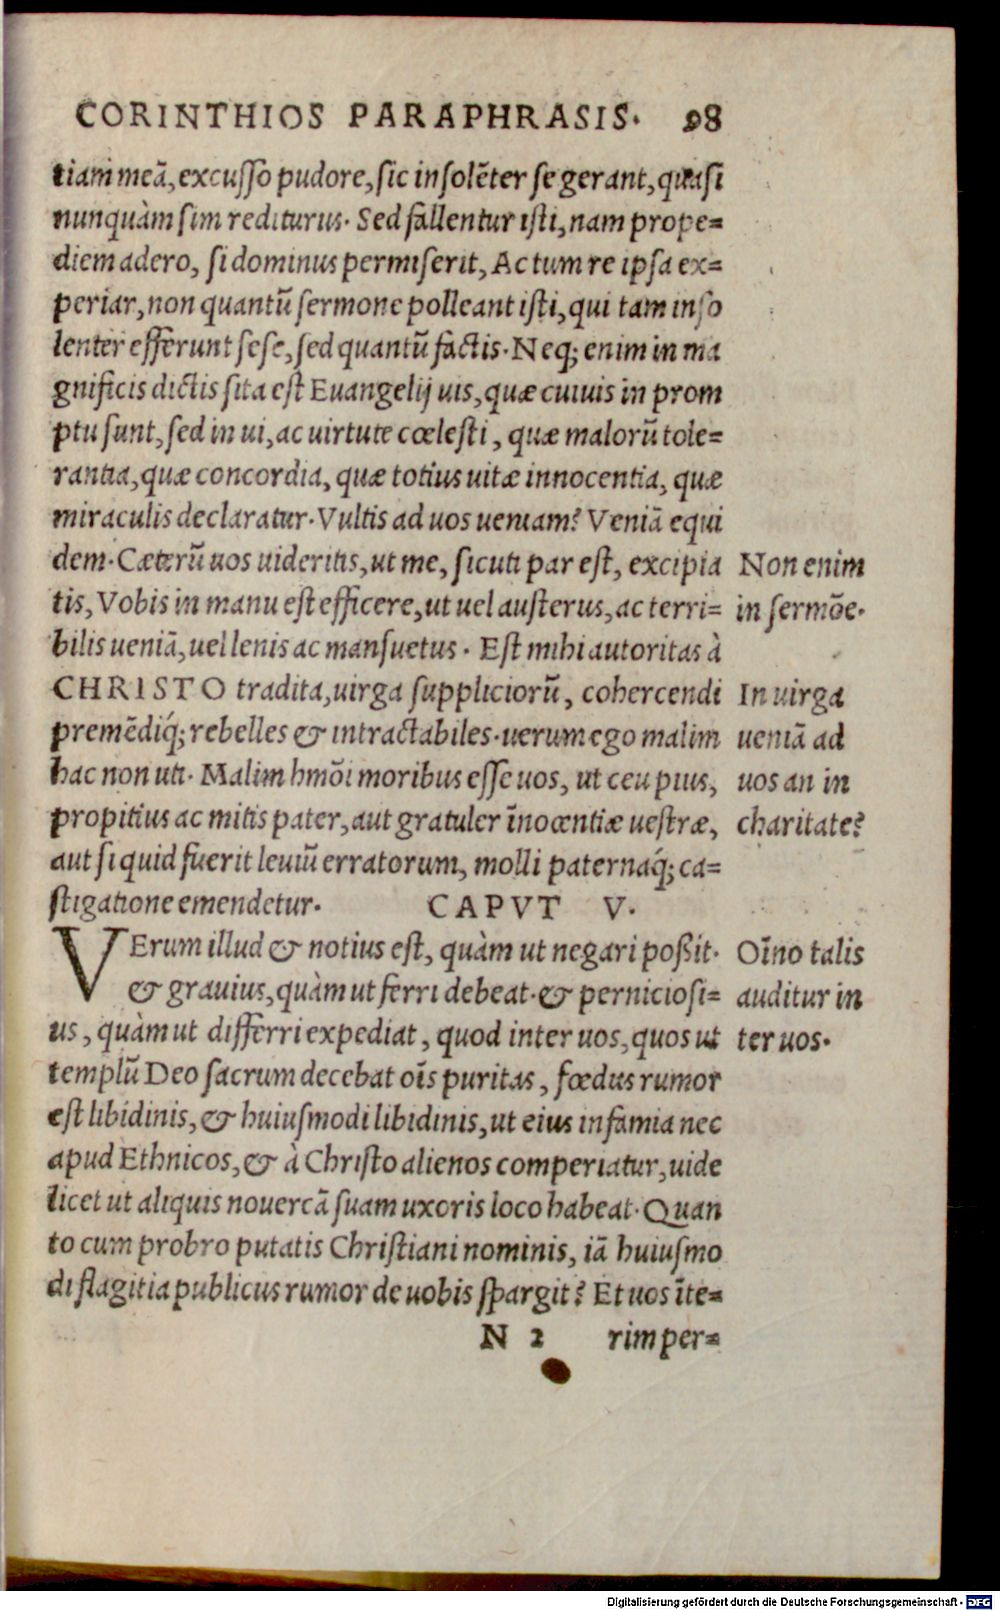 CORINTHIOS PARAPHRASIS. 98
tiam meā, excusso pudore, sic insolēter se gerant, quasi
nunquàm sim rediturus. Sed fallentur isti, nam prope=
diem adero, si dominus permiserit, Ac tum re ipsa ex=
periar, non quantū sermone polleant isti, qui tam inso
lenter efferunt sese, sed quantū factis. Neq; enim in ma
gnificis dictis sita est Euangelij uis, quæ cuiuis in prom
ptu sunt, sed in ui, ac uirtute cœlesti, quæ malorū tole=
rantia, quæ concordia, quæ totius uitæ innocentia, quæ
miraculis declaratur. Vultis ad uos ueniam? Veniā equi
dem. Cæterū uos uideritis, ut me, sicuti par est, excipia
tis, Vobis in manu est efficere, ut uel austerus, ac terri=
bilis ueniā, uel lenis ac mansuetus. Est mihi autoritas à
CHRISTO tradita, uirga suppliciorū, cohercendi
premēdiq́; rebelles & intractabiles. uerum ego malim
hac non uti. Malim hmōi moribus esse uos, ut ceu pius,
propitius ac mitis pater, aut gratuler īnocentiæ uestræ,
aut si quid fuerit leuiū erratorum, molli paternaq́; ca=
stigatione emendetur.
Non enim
in sermōe.
In uirga
ueniā ad
uos an in
charitate?
CAPVT V.
VErum illud & notius est, quàm ut negari poßit.
& grauius, quàm ut ferri debeat. & perniciosi=
us, quàm ut differri expediat, quod inter uos, quos ut
templū Deo sacrum decebat oīs puritas, fœdus rumor
est libidinis, & huiusmodi libidinis, ut eius infamia nec
apud Ethnicos, & à Christo alienos comperiatur, uide
licet ut aliquis nouercā suam uxoris loco habeat. Quan
to cum probro putatis Christiani nominis, iā huiusmo
di flagitia publicus rumor de uobis spargit? Et uos īte=
Oīno talis
auditur in
ter uos.
N 2 rim per=
Digitalisierung gefördert durch die Deutsche Forschungsgemeinschaft - DFG